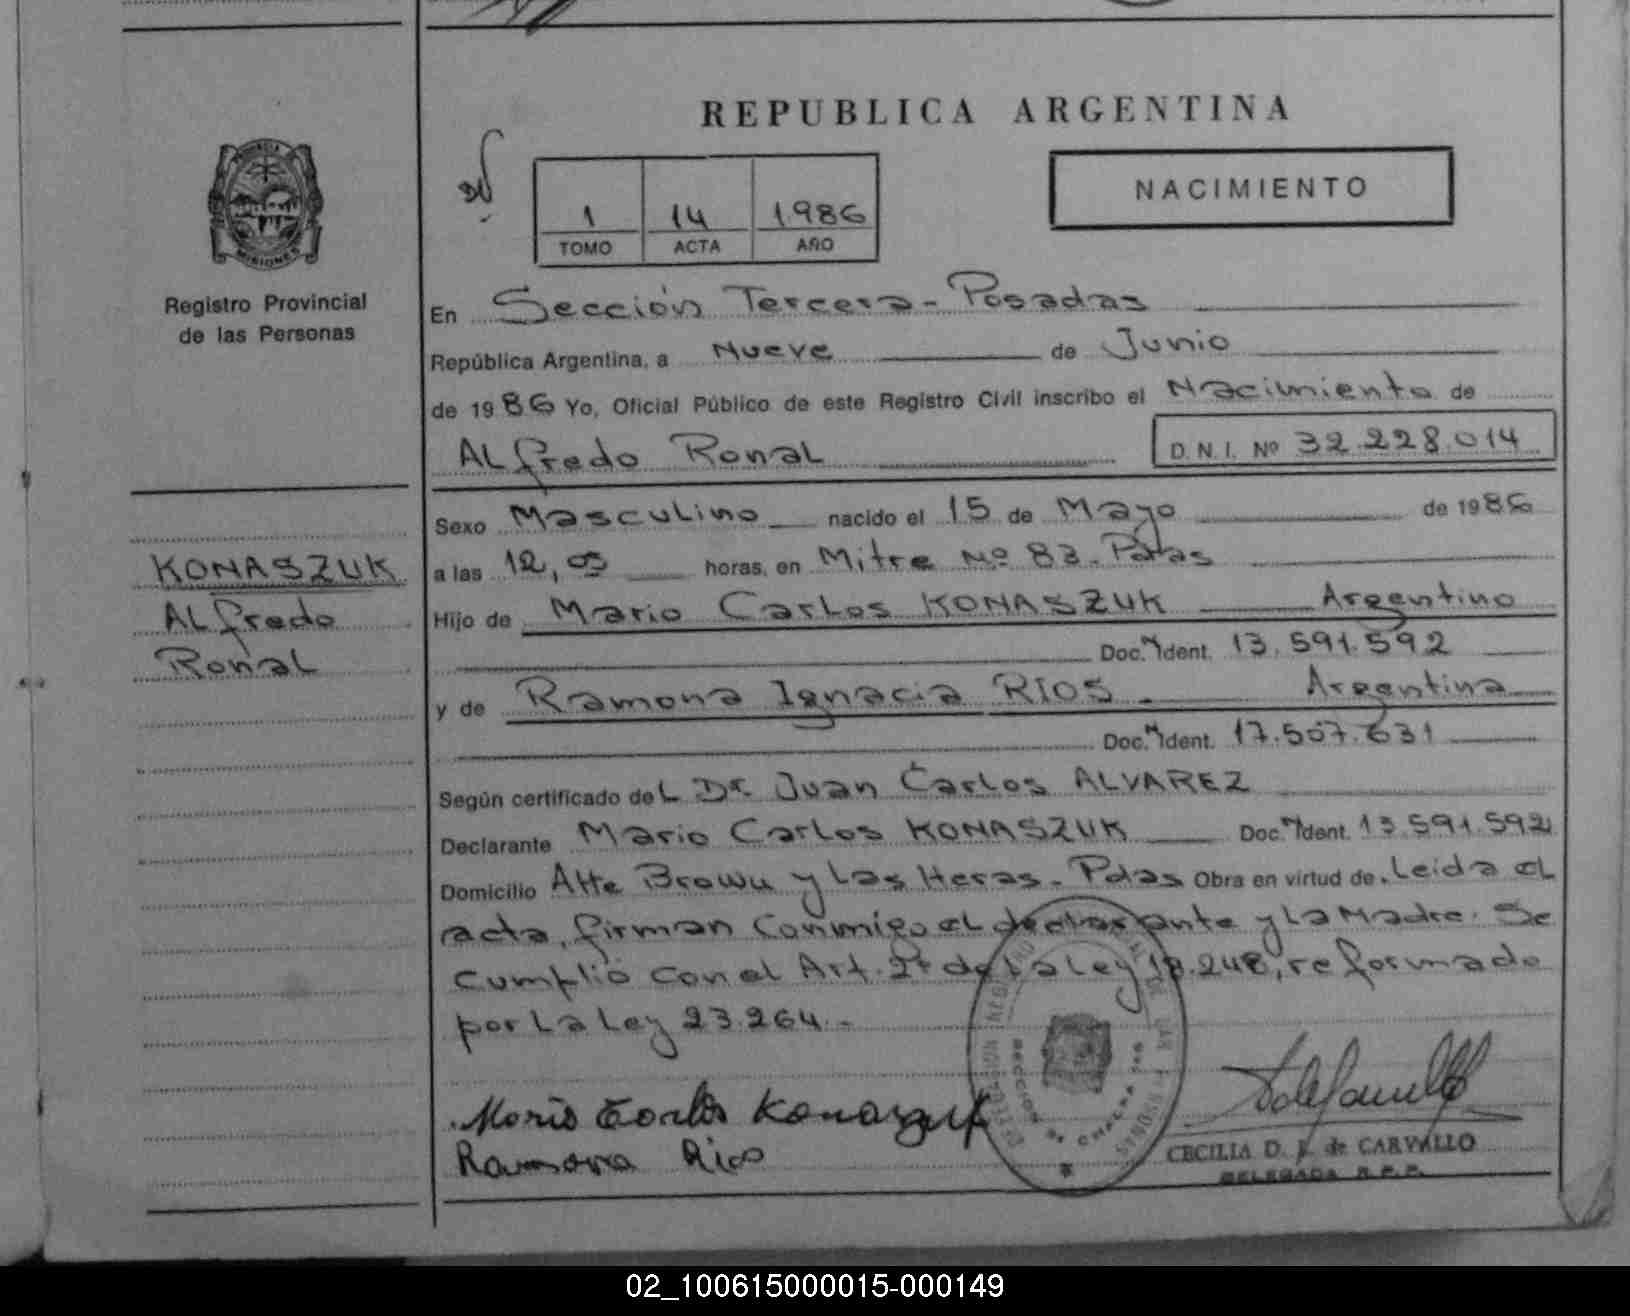 REPUBLICA ARGENTINA
NACIMIENTO
1 14 1986
TOMO ACTA AÑO
PROVINCIA
MISIONES
Registro Provincial
de las Personas
KONASZUK
ALfredo
Ronal
En Sección Tercera - Posadas
República Argentina, a Nueve de Junio
de 1986 Yo, Oficial Público de este Registro Civil inscribo el Nacimiento de
ALfredo Ronal D. N. I. Nº 32.228.014
Sexo Masculino nacido el 15 de Mayo de 1986
a las 12,05 horas, en Mitre Nº 83 - Pdas
Hijo de Mario Carlos KONASZUK Argentino
Doc. Ident. 13.591.592
y de Ramona Ignacia RIOS - Argentina
Doc. Ident. 17.507.631
Según certificado deL Dr. Juan Carlos ALVAREZ
Declarante Mario Carlos KONASZUK Doc. Ident. 13.591.592
Domicilio Alte Brown y Las Heras - Pdas Obra en virtud de. Leida eL
acta, firman conmigo eL declarante y La Madre. Se
cumplió con el Art. 2º de La Ley 18.248, reformado
por La Ley 23.264. -
Mario Carlos Konaszuk
Ramona Rios
CECILIA D. de CARVALLO
DELEGADA R.P.P.
02_100615000015-000149